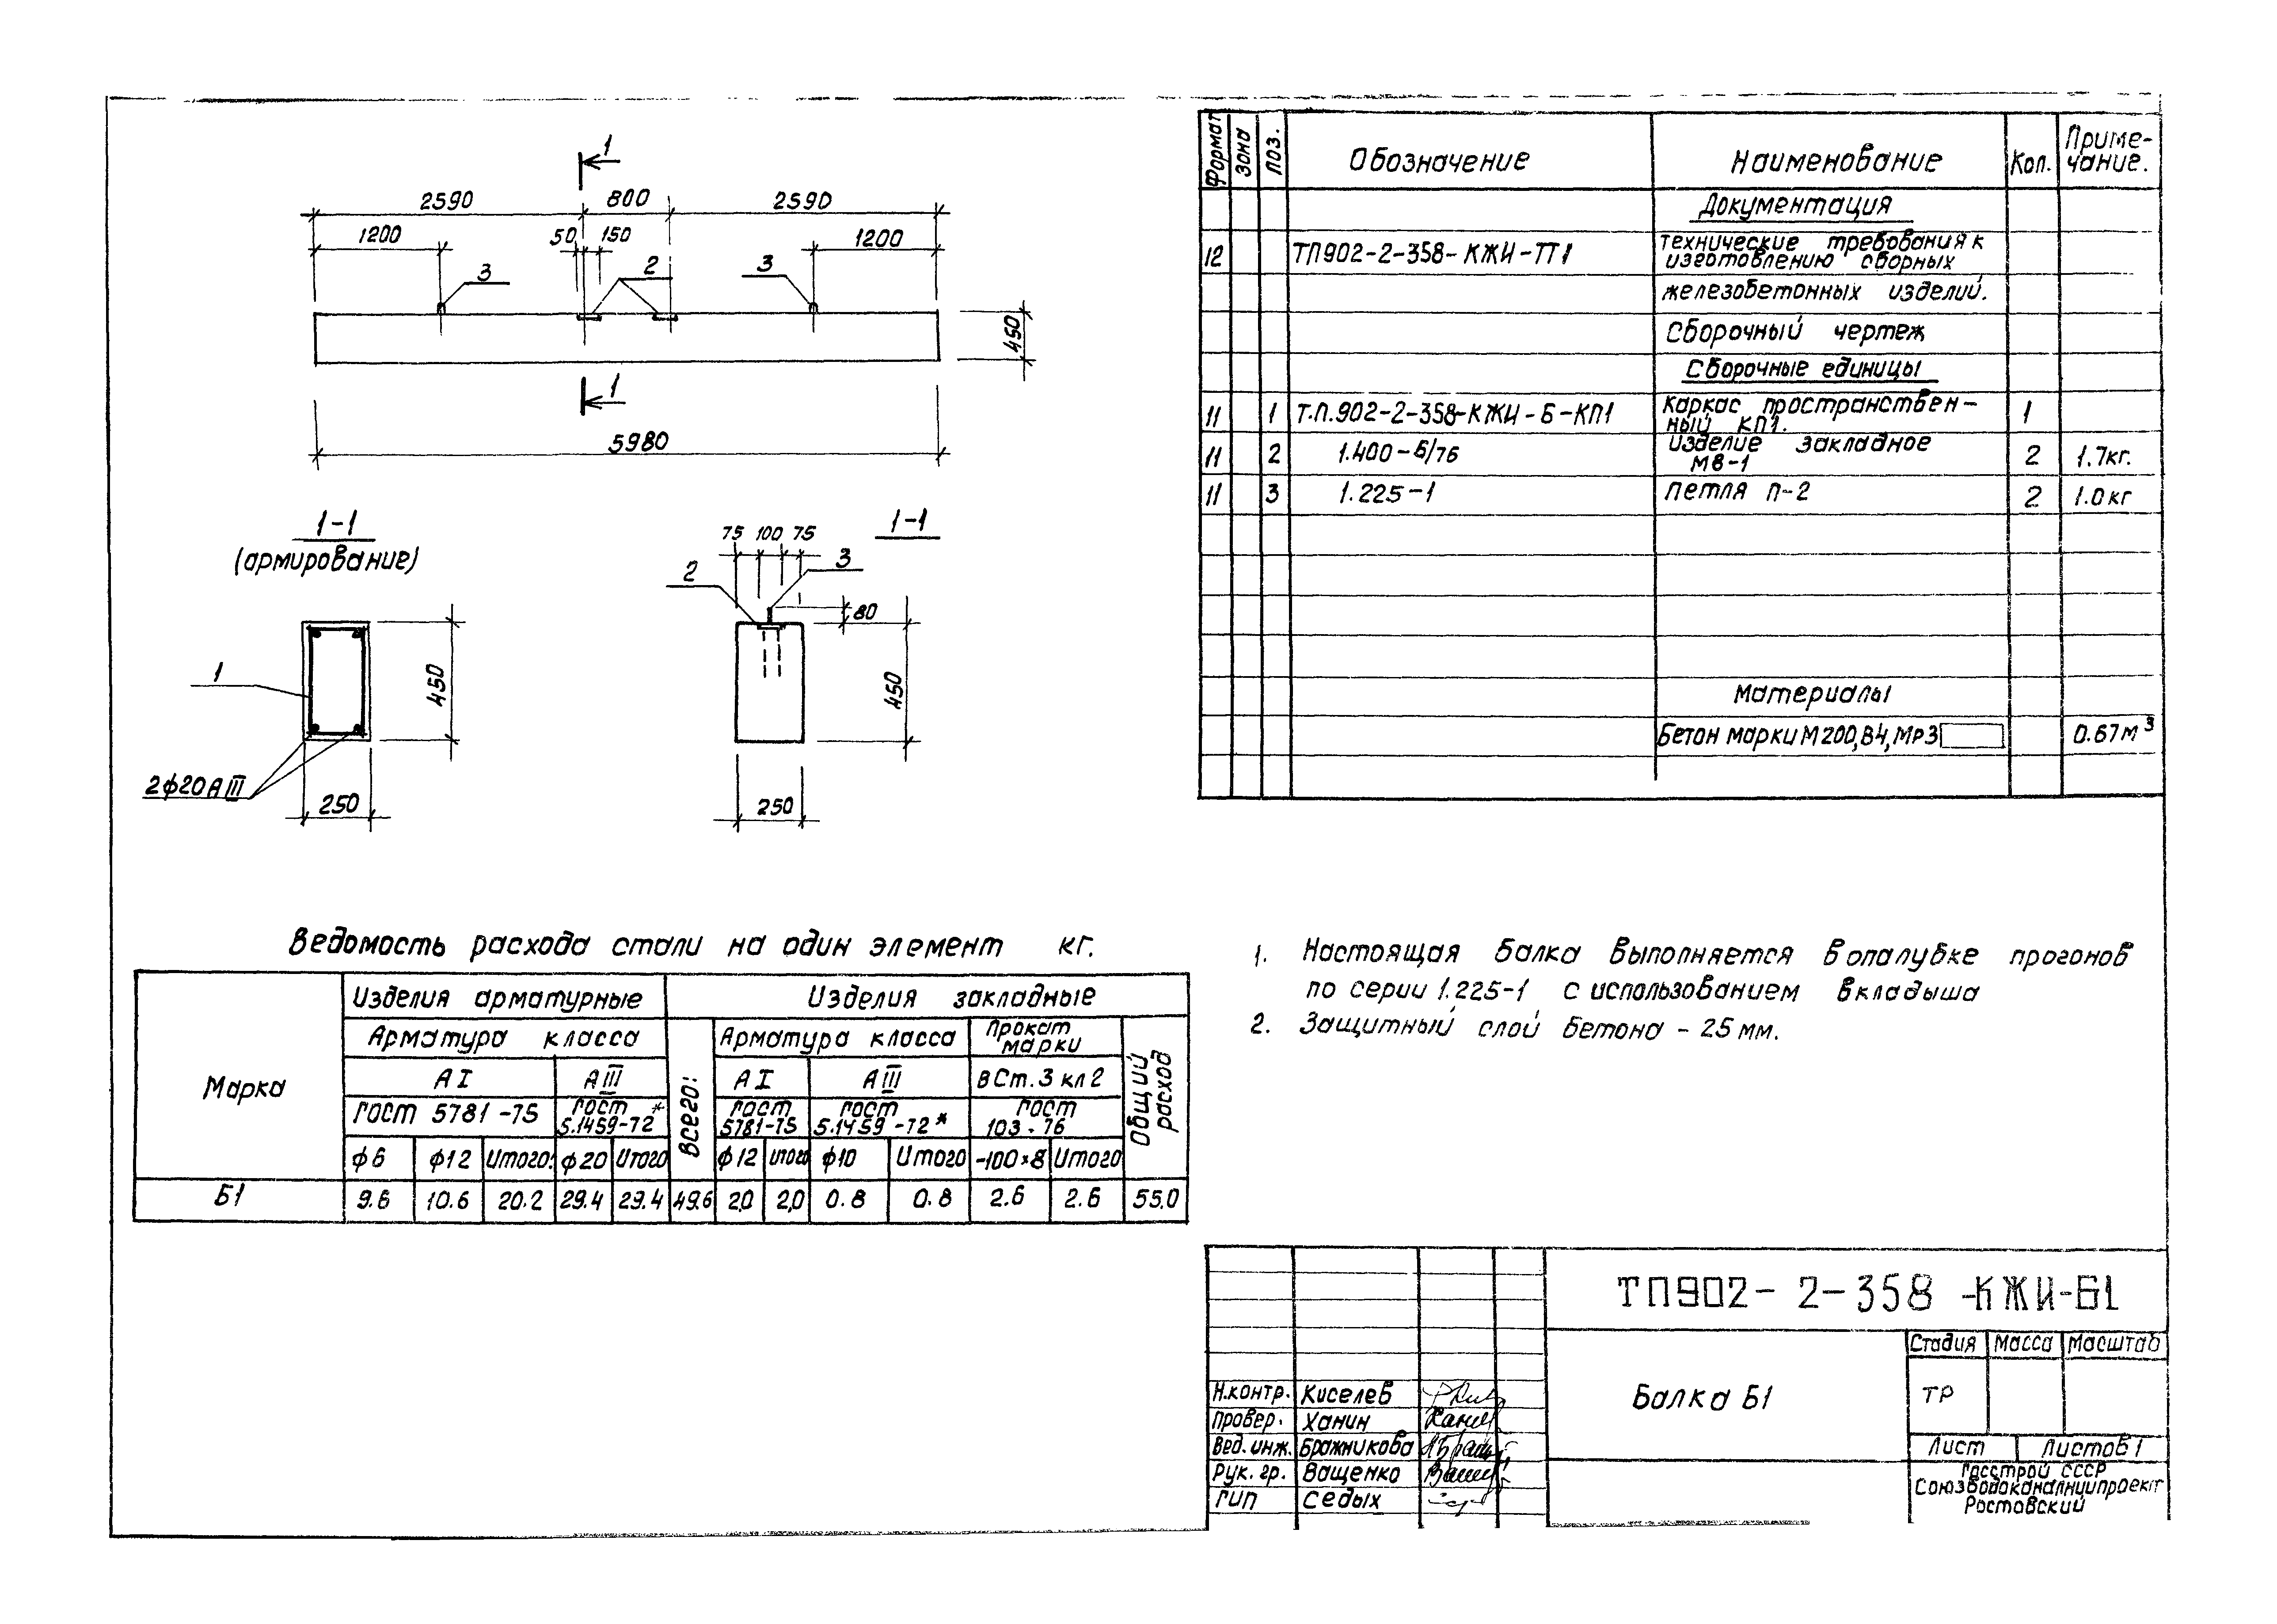 1
2590 800 2590
1200 50 150 1200
3 2 3
450
1
5980
1-1
(армирование)
1
450
2ф20АIII
250
1-1
75 100 75
2 3
80
450
250
Формат Зона Поз. Обозначение Наименование Кол. Приме-
чание.
Документация
12 ТП902-2-358-КЖИ-ТТ1 технические требования к
изготовлению сборных
железобетонных изделий.
Сборочный чертеж
Сборочные единицы
11 1 Т.П.902-2-358-КЖИ-Б-КП1 Каркас пространствен-
ный КП1. 1
11 2 1.400-6/76 Изделие закладное
М8-1 2 1.7кг.
11 3 1.225-1 Петля П-2 2 1.0кг
Материалы
Бетон марки М200,В4,Мр3 0.67м³
Ведомость расхода стали на один элемент кг.
Марка Изделия арматурные Всего: Изделия закладные Общий расход
Арматура класса Арматура класса Прокат
марки
АI АIII АI АIII ВСт.3 кл2
ГОСТ 5781-75 ГОСТ
5.1459-72* ГОСТ
5781-75 ГОСТ
5.1459-72* ГОСТ
103-76
ф6 ф12 Итого: ф20 Итого ф12 Итого ф10 Итого -100×8 Итого
Б1 9.6 10.6 20.2 29.4 29.4 49.6 2.0 2,0 0.8 0.8 2.6 2.6 55.0
1. Настоящая балка выполняется в опалубке прогонов
по серии 1.225-1 с использованием вкладыша
2. Защитный слой бетона - 25 мм.
ТП902-2-358-КЖИ-Б1
Балка Б1
Стадия Масса Масштаб
ТР
Лист Листов 1
Госстрой СССР
Союзводоканалниипроект
Ростовский
Н.контр. Киселев
Провер. Ханин
Вед.инж. Бражникова
Рук. гр. Ващенко
ГИП Седых